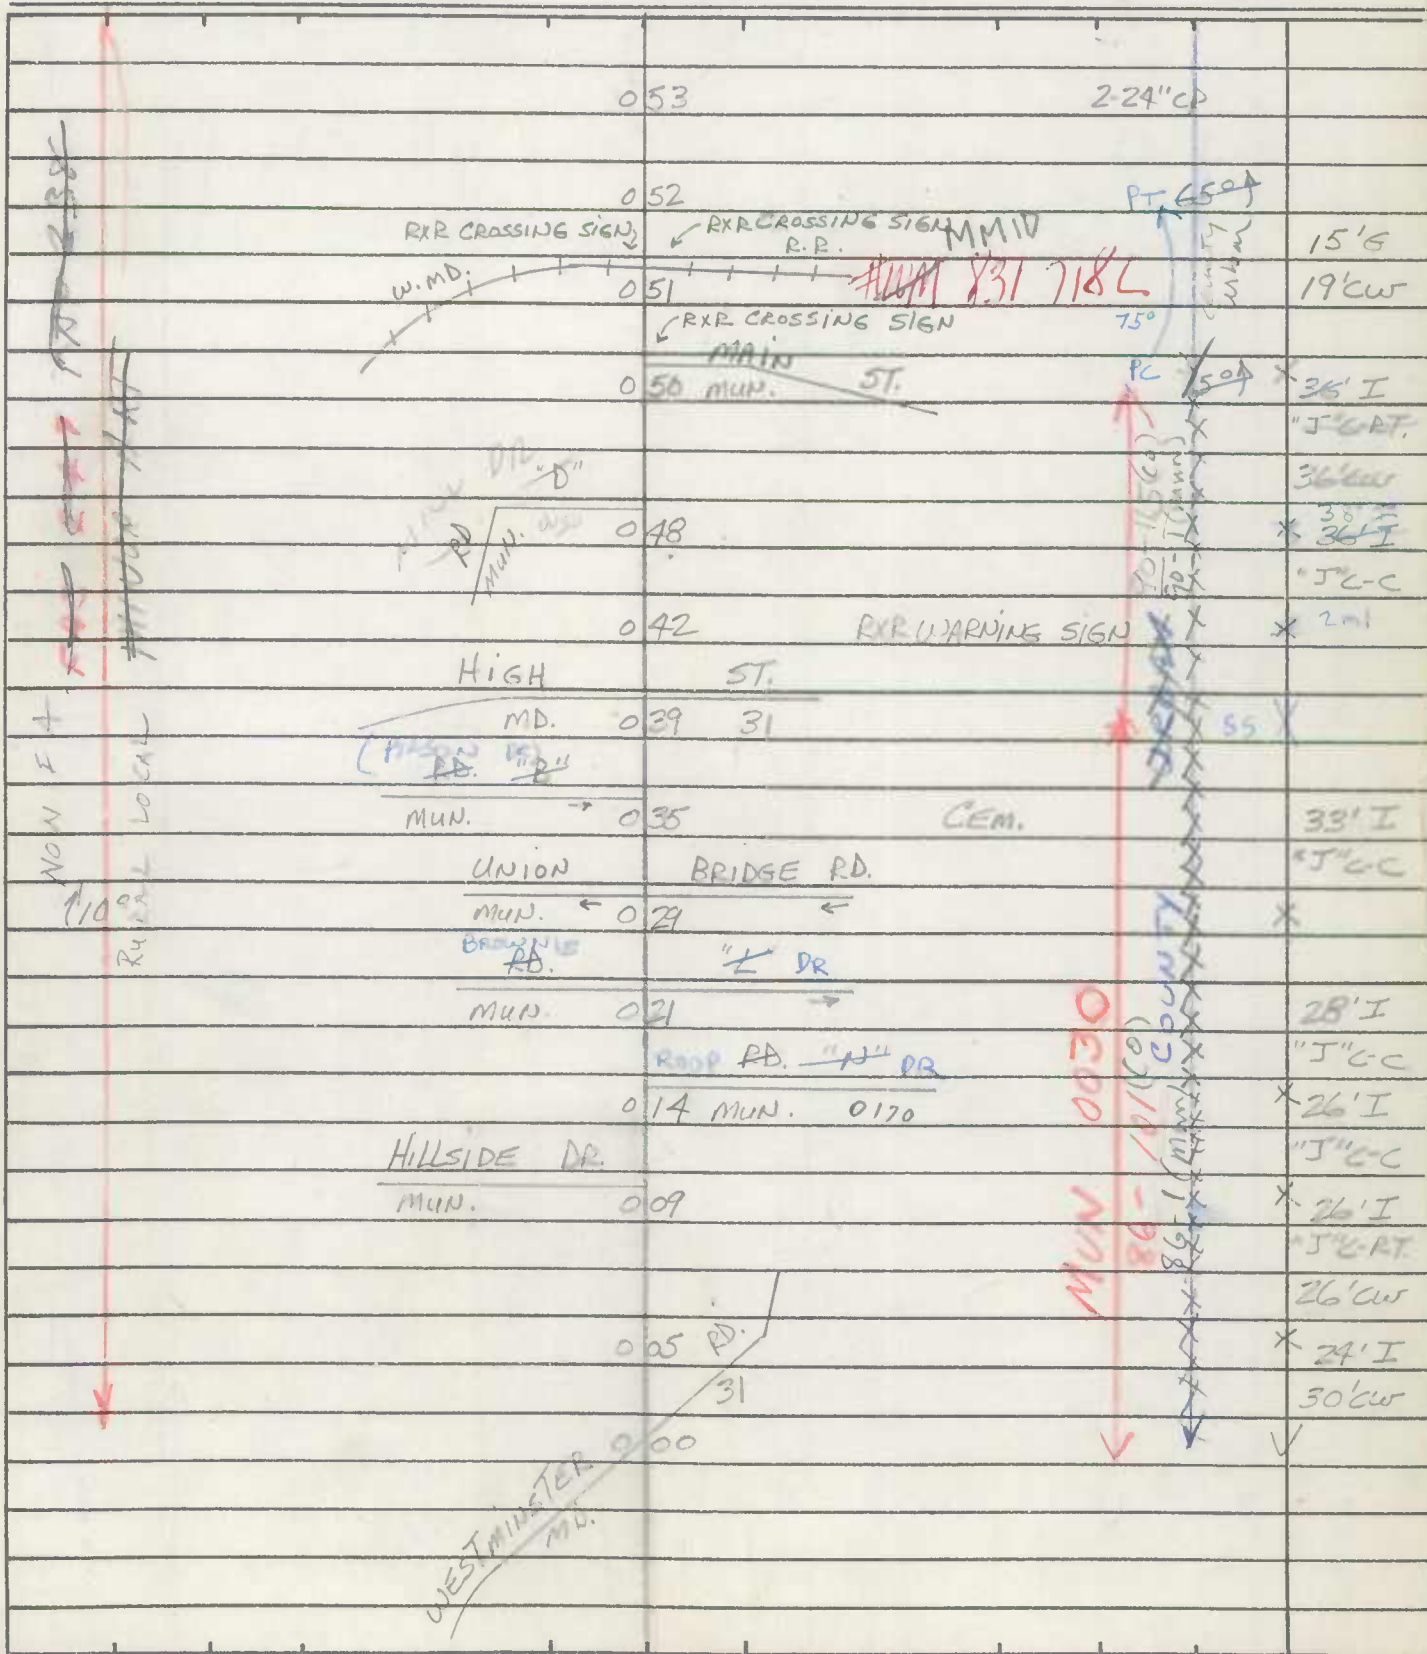 0 53 2-24"CP
0 52 PT 65°
RXR CROSSING SIGN RXR CROSSING SIGN MMID
R.R. 15'G
W.MD. 0 51 831 718L 19'CW
RXR CROSSING SIGN 75°
MAIN PC
0 50 MUN. ST. 36' I
"J"C-RT.
"D" 36'CW
RD MUN. 0 48 36' I
"J"C-C
0 42 RXR WARNING SIGN 2ml
HIGH ST.
MD. 0 39 31 SS
RD. "R"
MUN. → 0 35 CEM. 33' I
UNION BRIDGE RD. "J"C-C
MUN. ← 0 29 ←
BROWNIE
RD. "L" DR
MUN. 0 21 → 28' I
ROOP RD. "N" DR "J"C-C
0 14 MUN. 0170 26' I
HILLSIDE DR. "J"C-C
MUN. 0 09 26' I
"J"C-RT.
26'CW
0 05 RD. 24' I
31 30'CW
0 00
WESTMINSTER
MD.
NON F A
RURAL LOCAL
110°
MUN 0030
86-101(CO)
86-1(MUN)
COUNTY
URBAN